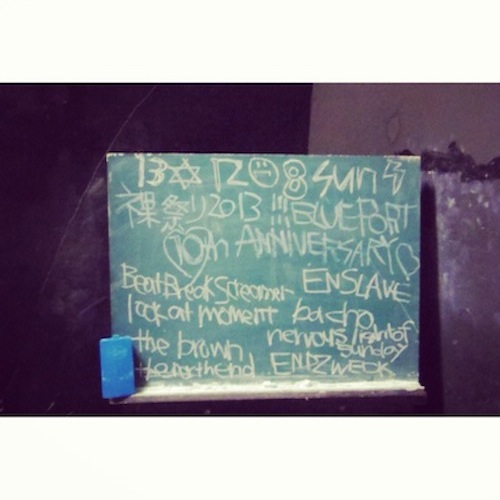 13✡12☺8 sun
裸祭り2013 !!! BLUEPORT
10th ANNIVERSARY♡
BeatBreakScreamer ENSLAVE
look at moment bacho
the brown nervous light of
sunday
the northend ENDZWECK